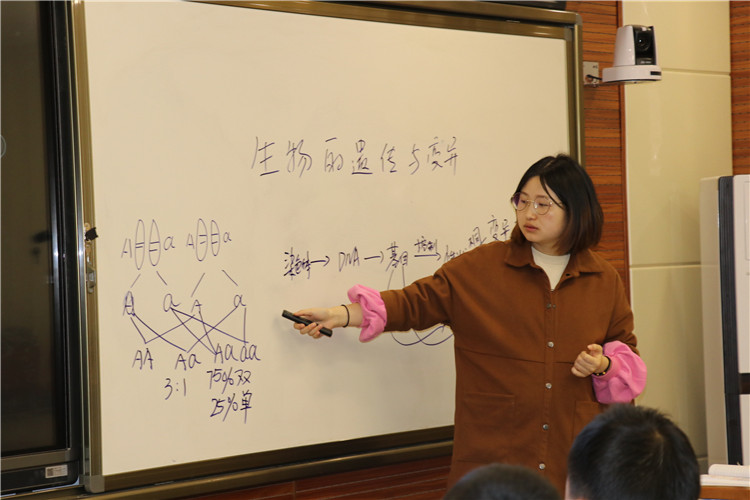 生物的遗传与变异
染色体→DNA→基因 控制→ 变异
A a A a
A a A a
AA Aa Aa aa
3:1 75%双
25%单